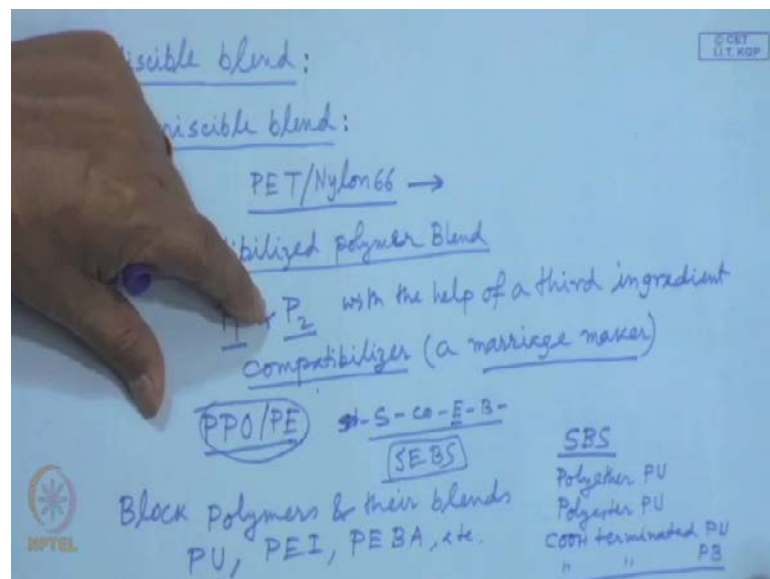 © CET
I.I.T. KGP
iscible blend:
miscible blend:
PET/Nylon66 →
tibilized polymer Blend
P2 with the help of a third ingredient
compatibilizer (a marriage maker)
PPO/PE -S-co-E-B-
SEBS
SBS
Polyether PU
Polyester PU
COOH terminated PU
" " PB
Block polymers & their blends
PU, PEI, PEBA, etc.
NPTEL